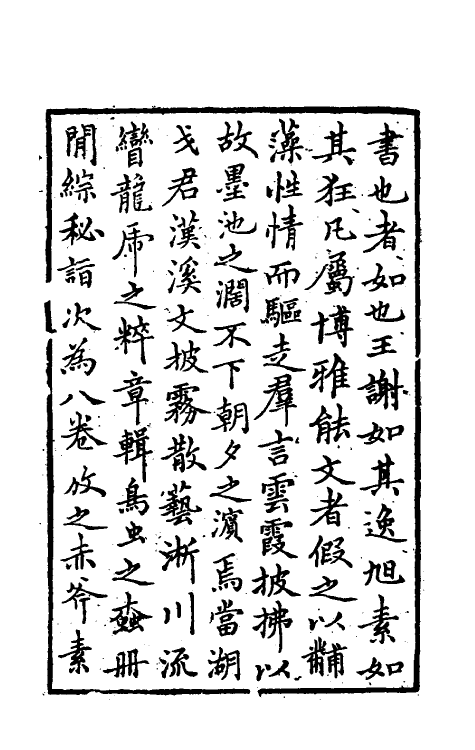 書也者如也王謝如其逸旭素如
其狂凡屬博雅能文者假之以黼
藻性情而驅走羣言雲霞披拂以
故墨池之濶不下朝夕之濱焉當湖
戈君漢溪文披霧散藝淅川流
龍虎之粹章輯鳥虫之蠧册
閒綜秘詣次為八卷攷之赤斧素